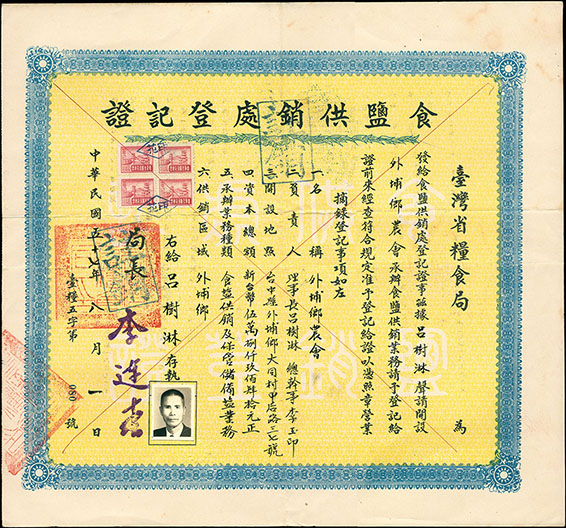 食鹽供銷處登記證
臺灣省糧食局 為
發給食鹽供銷處登記證事茲據 呂樹淋 聲請開設
外埔鄉農會承辦食鹽供銷業務請予登記給
證前來經查符合規定准予登記給證以憑照章營業
摘錄登記事項如左
一 名稱 外埔鄉農會
二 負責人 理事長呂樹淋 總幹事李玉印
三 開設地點 台中縣外埔鄉大同村甲后路三七號
四 資本總額 新台幣伍萬捌仟玖佰肆拾元正
五 承辦業務種類 食鹽供銷及保管儲備鹽業務
六 供銷區域 外埔鄉
右給 呂樹淋 存執
局長 李連春
中華民國五七年八月一日
臺糧五字第 060 號